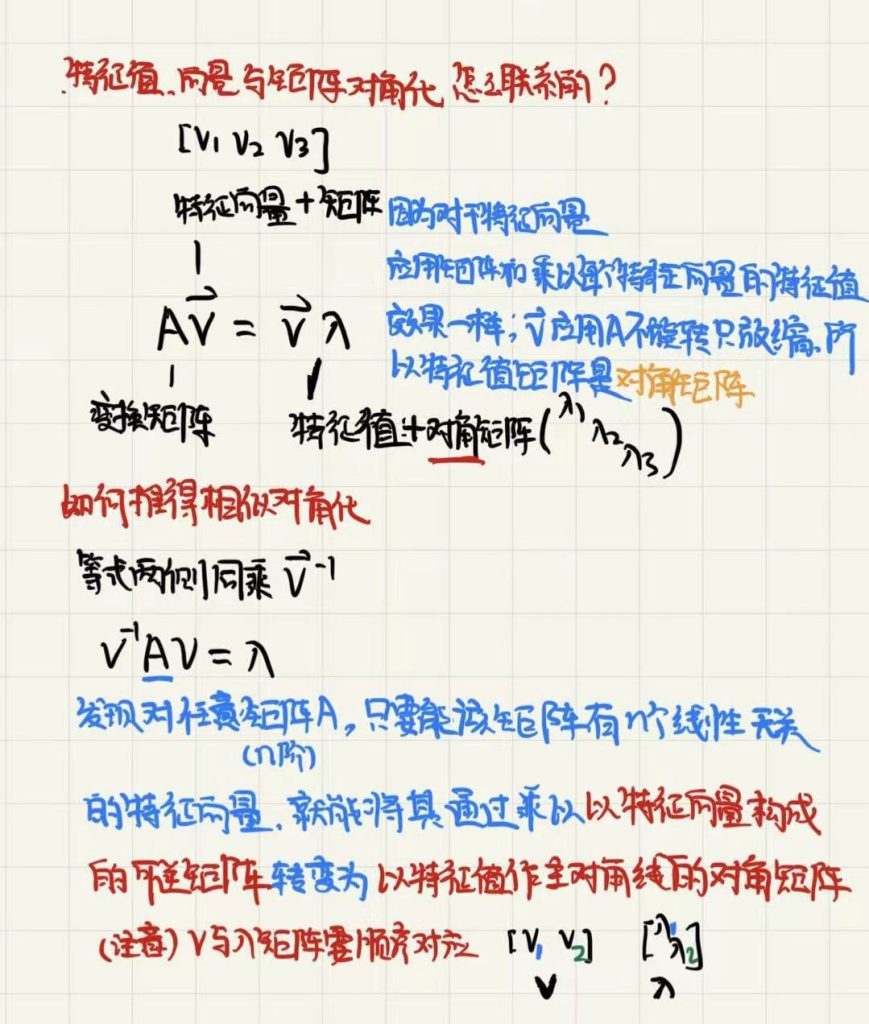 特征值、向量与矩阵对角化怎么联系的?
[v₁ v₂ v₃]
特征向量+矩阵
因为对于特征向量
应用矩阵和乘以每个特征向量的特征值
效果一样;v⃗应用A不旋转只放缩、所
以特征值矩阵是对角矩阵
Av⃗ = v⃗λ
变换矩阵
特征值+对角矩阵(λ₁ λ₂ λ₃)
如何推得相似对角化
等式两侧同乘 v⃗⁻¹
v⁻¹Av = λ
发现对任意矩阵A,只要能该矩阵有n个线性无关
(n阶)
的特征向量、就能将其通过乘以以特征向量构成
的可逆矩阵转变为以特征值作主对角线的对角矩阵
(注意)v与λ矩阵要顺序对应 [v₁ v₂] [λ₁ λ₂]
v λ